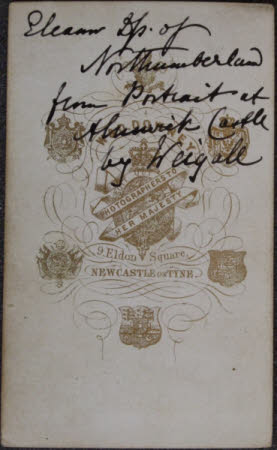 Eleanor Dss. of
Northumberland
from Portrait at
Alnwick Castle
by Weigall
W. & D. DOWNEY
PHOTOGRAPHERS TO
HER MAJESTY
9 Eldon Square,
NEWCASTLE ON TYNE.